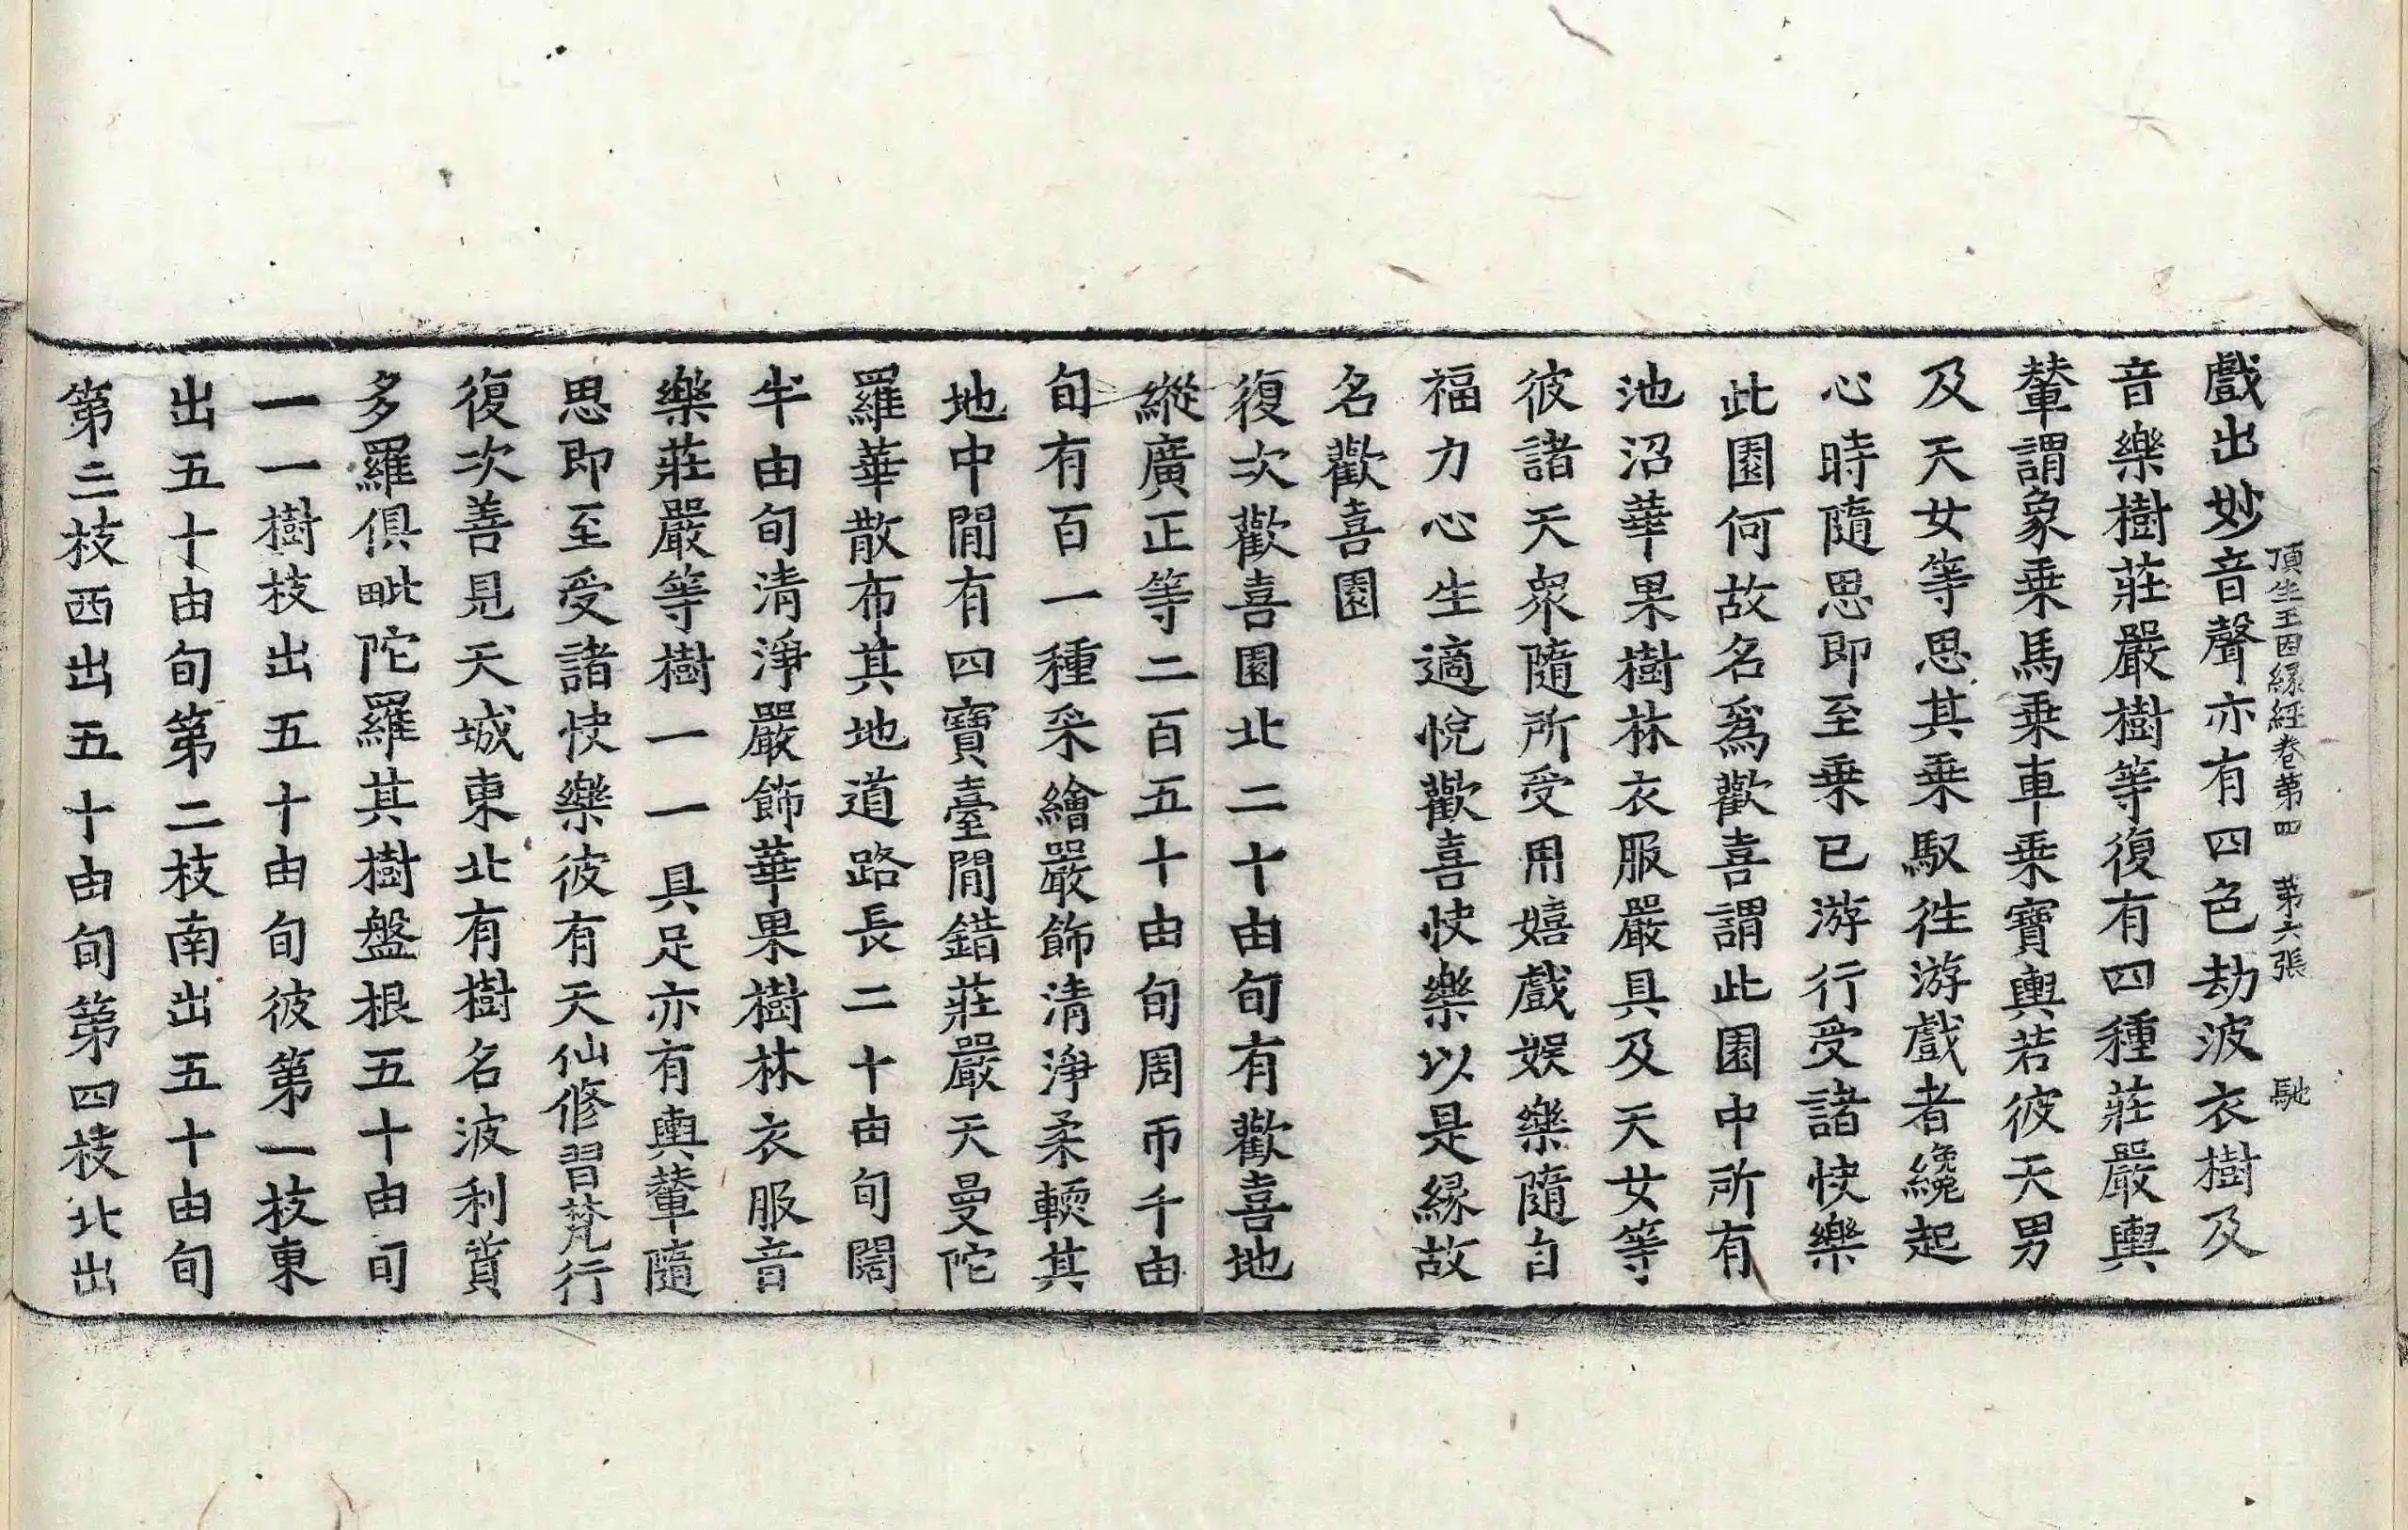 頂生王因緣經卷第四 第六張 馳
戲出妙音聲亦有四色劫波衣樹及
音樂樹莊嚴樹等復有四種莊嚴輿
輦謂象乘馬乘車乘寶輿若彼天男
及天女等思其乘馭徃游戲者纔起
心時隨思即至乘已游行受諸快樂
此園何故名爲歡喜謂此園中所有
池沼華果樹林衣服嚴具及天女等
彼諸天衆隨所受用嬉戲娛樂隨自
福力心生適悅歡喜快樂以是緣故
名歡喜園
復次歡喜園北二十由旬有歡喜地
縱廣正等二百五十由旬周帀千由
旬有百一種采繪嚴飾清淨柔輭其
地中閒有四寶臺閒錯莊嚴天曼陀
羅華散布其地道路長二十由旬闊
半由旬清淨嚴飾華果樹林衣服音
樂莊嚴等樹一一具足亦有輿輦隨
思即至受諸快樂彼有天仙修習梵行
復次善見天城東北有樹名波利質
多羅俱毗陀羅其樹盤根五十由旬
一一樹枝出五十由旬彼第一枝東
出五十由旬第二枝南出五十由旬
第三枝西出五十由旬第四枝北出